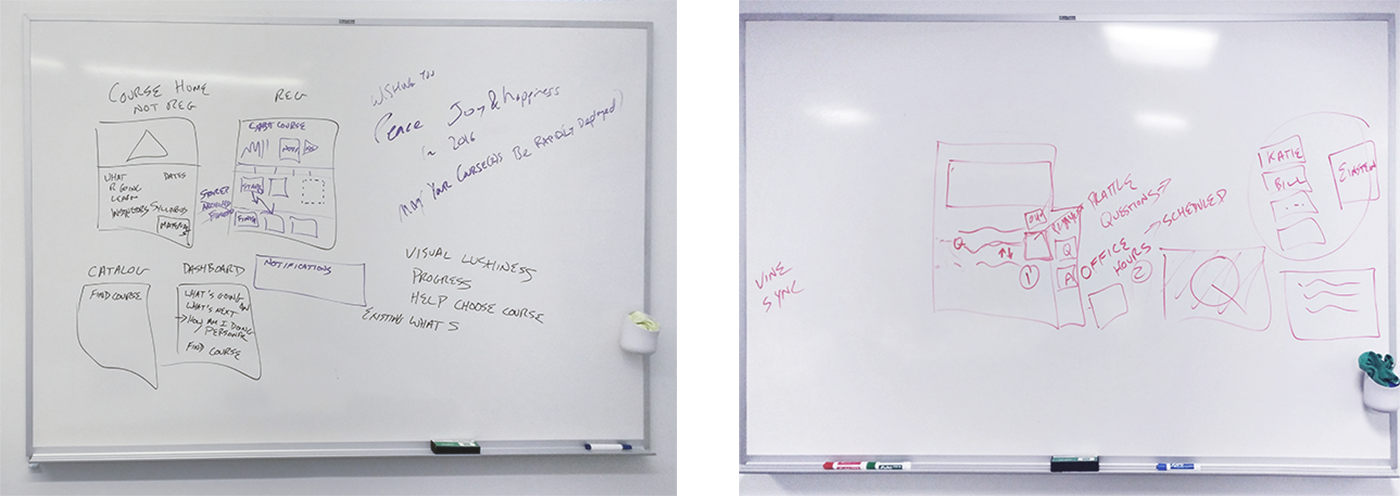 COURSE HOME
NOT REG
REG
WISHING YOU
Peace Joy & happiness
in 2016
May Your Courses Be Rapidly Deployed
WHAT
R GOING
LEARN
DATES
INSTRUCTORS SYLLABUS
MATERIALS
COURSE
START
FINISH
CATALOG
FIND COURSE
DASHBOARD
WHAT'S GOING ON
WHAT'S NEXT
→ HOW AM I DOING
PERSONAL
FIND COURSE
NOTIFICATIONS
VISUAL LUSHINESS
PROGRESS
HELP CHOOSE COURSE
EXISTING WHAT'S
VINE
SYNC
Q
PRATTLE
QUESTIONS
Q
A
1
OFFICE → SCHEDULED
HOURS
2
KATIE
BILL
...
EINSTEIN